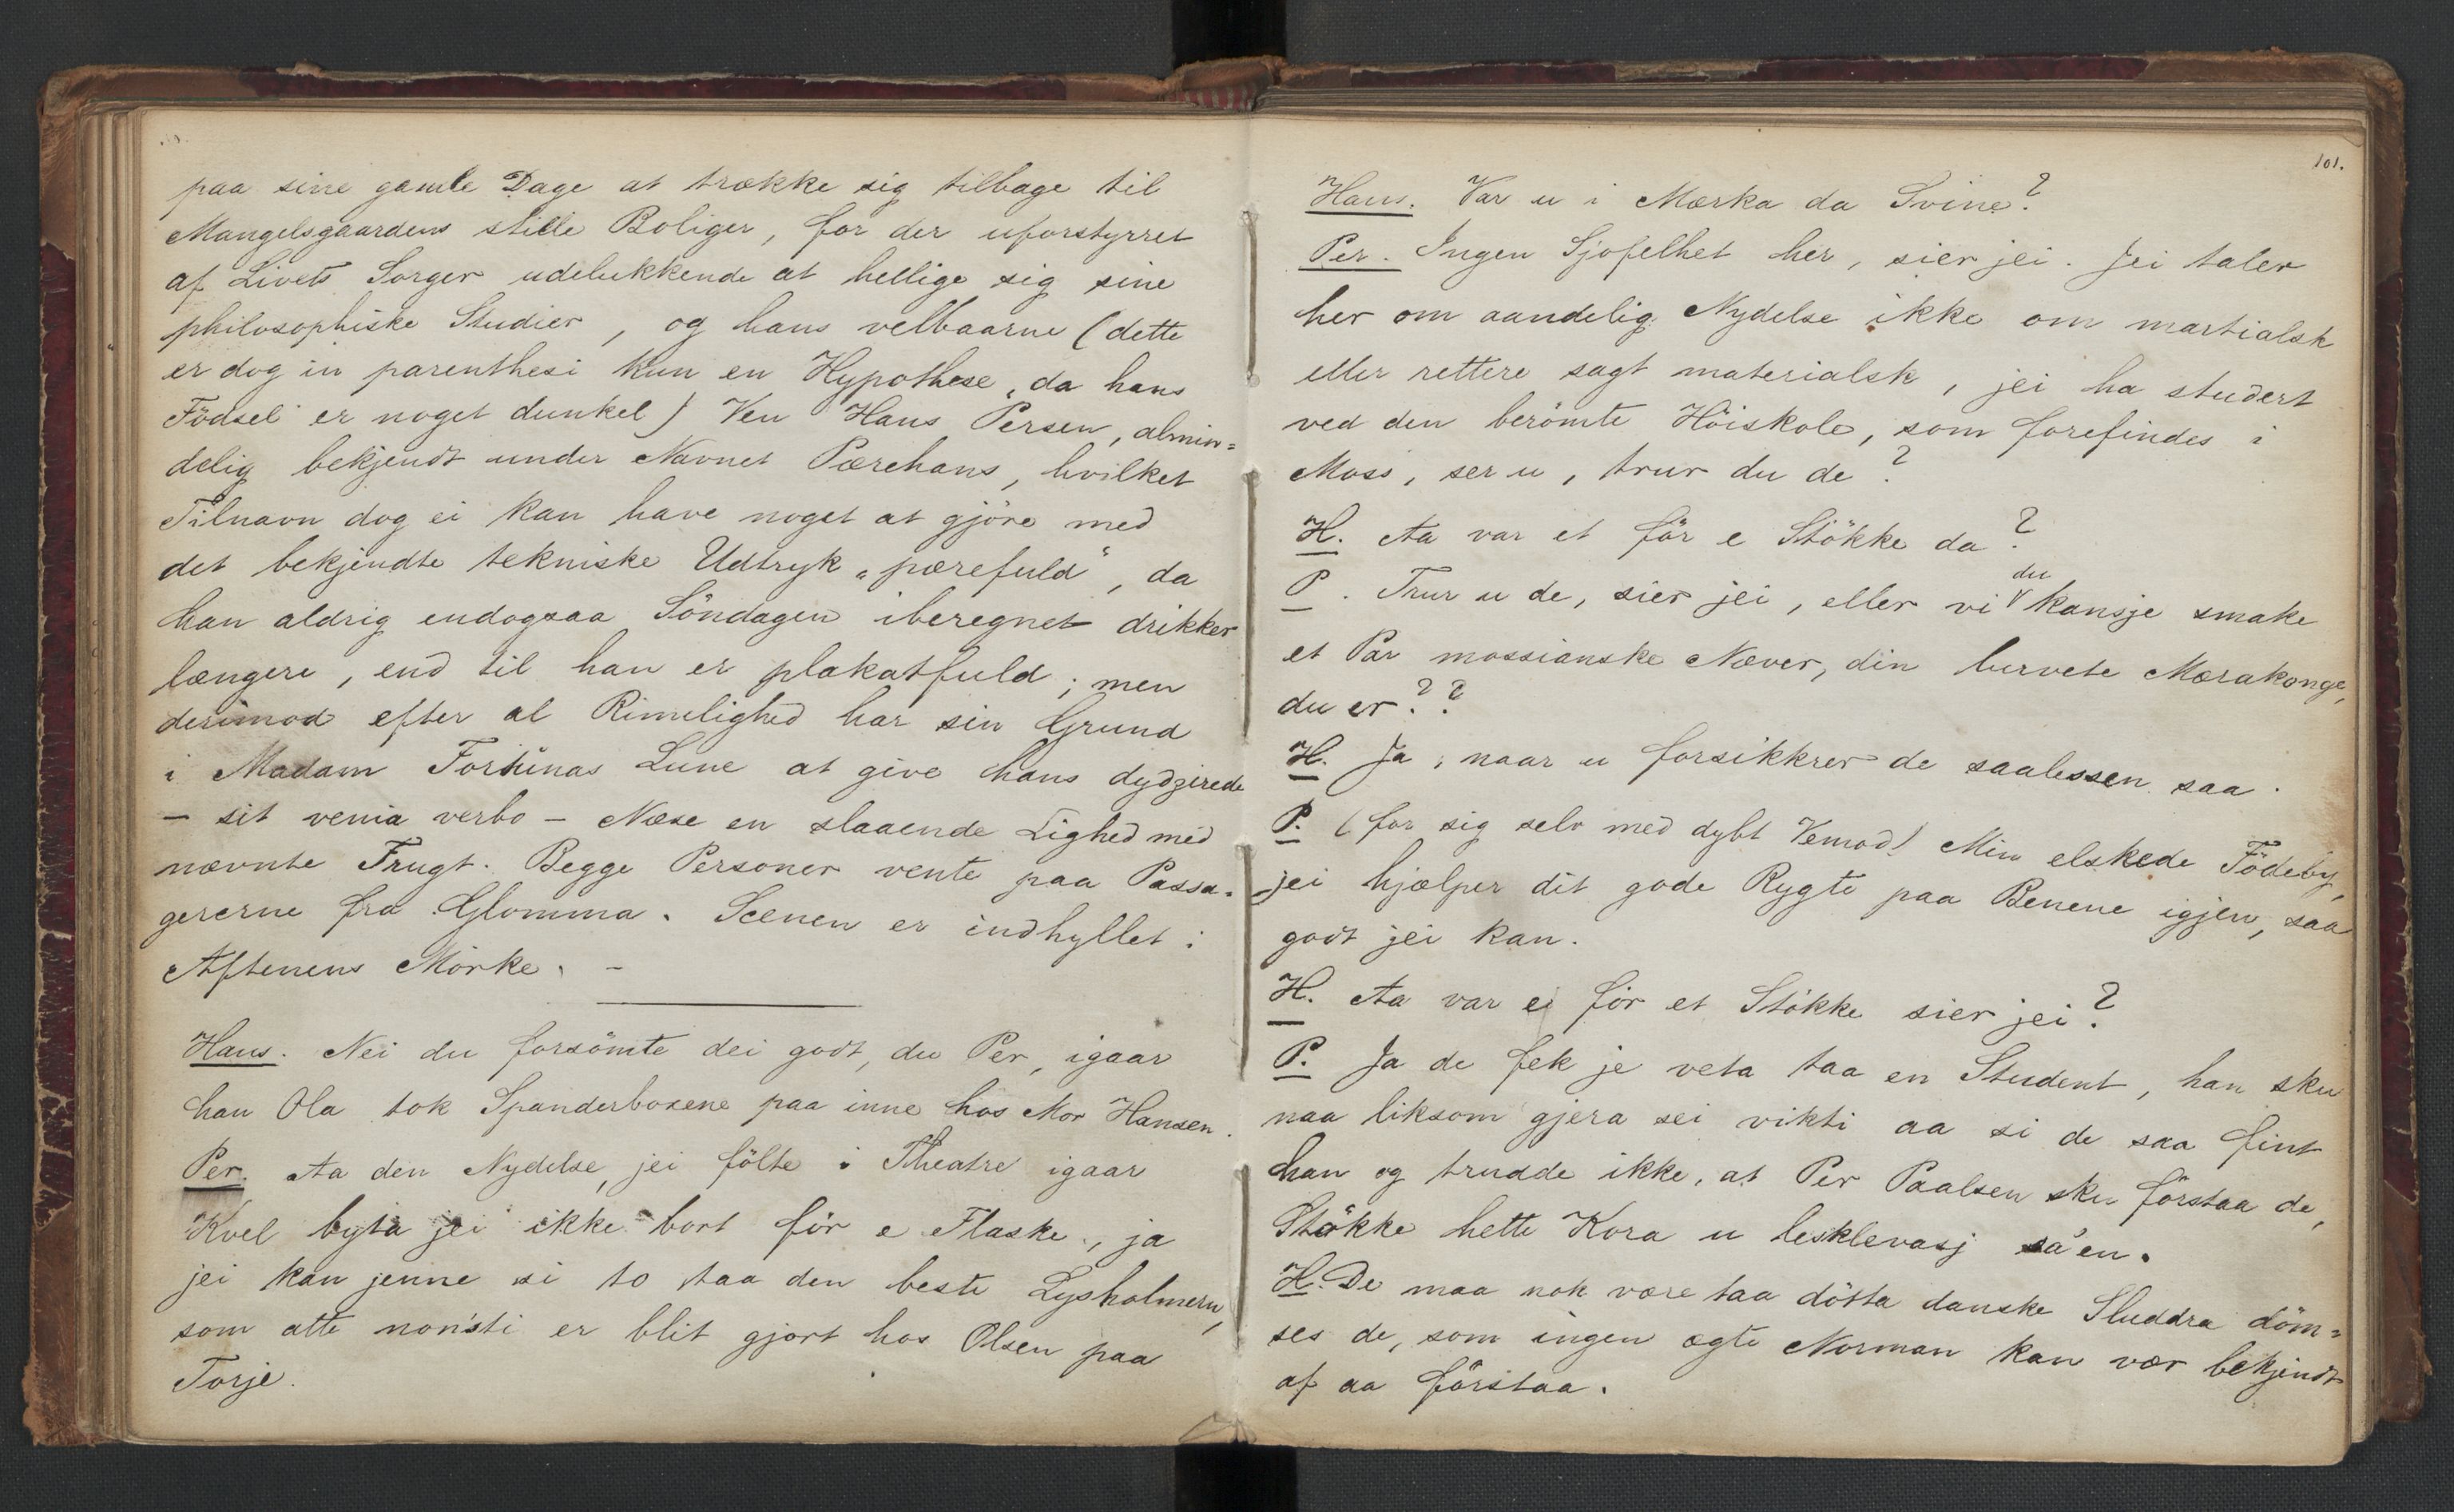 paa sine gamle Dage at trække sig tilbage til
Mangelsgaardens stille Boliger, for der uforstyrret
af Livets Sorger udelukkende at hellige sig sine
philosophiske Studier, og hans velbaarne (dette
er dog in parenthesi kun en Hypothese, da hans
Födsel er noget dunkel) Ven Hans Persen, almin=
delig bekjendt under Navnet Pærehans, hvilket
Tilnavn dog ei kan have noget at gjöre med
det bekjendte tekniske Udtryk „pærefuld", da
han aldrig endogsaa Söndagen iberegnet drikker
længere, end til han er plakatfuld; men
derimod efter al Rimelighed har sin Grund
i Madam Fortunas Lune at give hans dydzirede
– sit venia verbo – Næse en slaaende Lighed med
nævnte Frugt. Begge Personer vente paa Passa=
gererne fra Glomma. Scenen er indhyllet i
Aftenens Mörke. –
Hans. Nei du forsömte dei godt, du Per, igaar
han Ola tok Spanderboxene paa inne hos Mor Hansen.
Per. Aa den Nydelse, jei fölte i Theatre igaar
Kvel byta jei ikke bort för e Flaske, ja
jei kan jenne si to taa den beste Lysholmern,
som atte nonsti er blit gjort hos Olsen paa
Torje.
101.
Hans. Var u i Mærka da Svine?
Per. Ingen Sjofelhet her, sier jei. Jei taler
her om aandelig Nydelse ikke om martialsk
eller rettere sagt materialsk, jei ha studert
ved den berömte Höiskole, som forefindes i
Moss, ser u, trur du de?
H. Aa var et för e Stökke da?
P. Trur u de, sier jei, eller vi du kansje smake
et Par mossianske Næver, din lurvete Mærakonge,
du er??
H. Ja, naar u forsikkrer de saalessen saa.
P. (for sig selv med dybt Vemod) Min elskede Födeby,
jei hjælper dit gode Rygte paa Benene igjen, saa
godt jei kan.
H. Aa var ei för et Stökke sier jei?
P. Ja de fek je veta taa en Student, han sku
naa liksom gjera sei vikti aa si de saa fint
han og trudde ikke, at Per Paalsen sku förstaa de,
Stökke hette Kora u lesklevasj sa'en.
H. De maa nok være taa dötta danske Sluddra döm=
ses de, som ingen ægte Norman kan vær bekjendt
af aa förstaa.